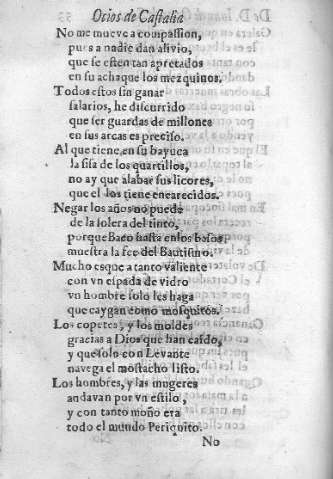 Ocios de Castalia
No me mueve a compassion,
pues a nadie dan alivio,
que se esten tan apretados
en su achaque los mezquinos.
Todos estos sin ganar
salarios, he discurrido
que ser guardas de millones
en sus arcas es preciso.
Al que tiene, en su bayuca
la sisa de los quartillos,
no ay que alabar sus licores,
que el los tiene encarecidos.
Negar los años no puede
de la solera del tinto,
porque Baco hasta en los basos
muestra la fee del Bautismo.
Mucho es que a tanto valiente
con vn espada de vidro
vn hombre solo les haga
que caygan como mosquitos.
Los copetes, y los moldes
gracias a Dios que han caido,
y que solo con Levante
navega el mostacho listo.
Los hombres, y las mugeres
andavan por vn estilo,
y con tanto moño era
todo el mundo Periquito.
No